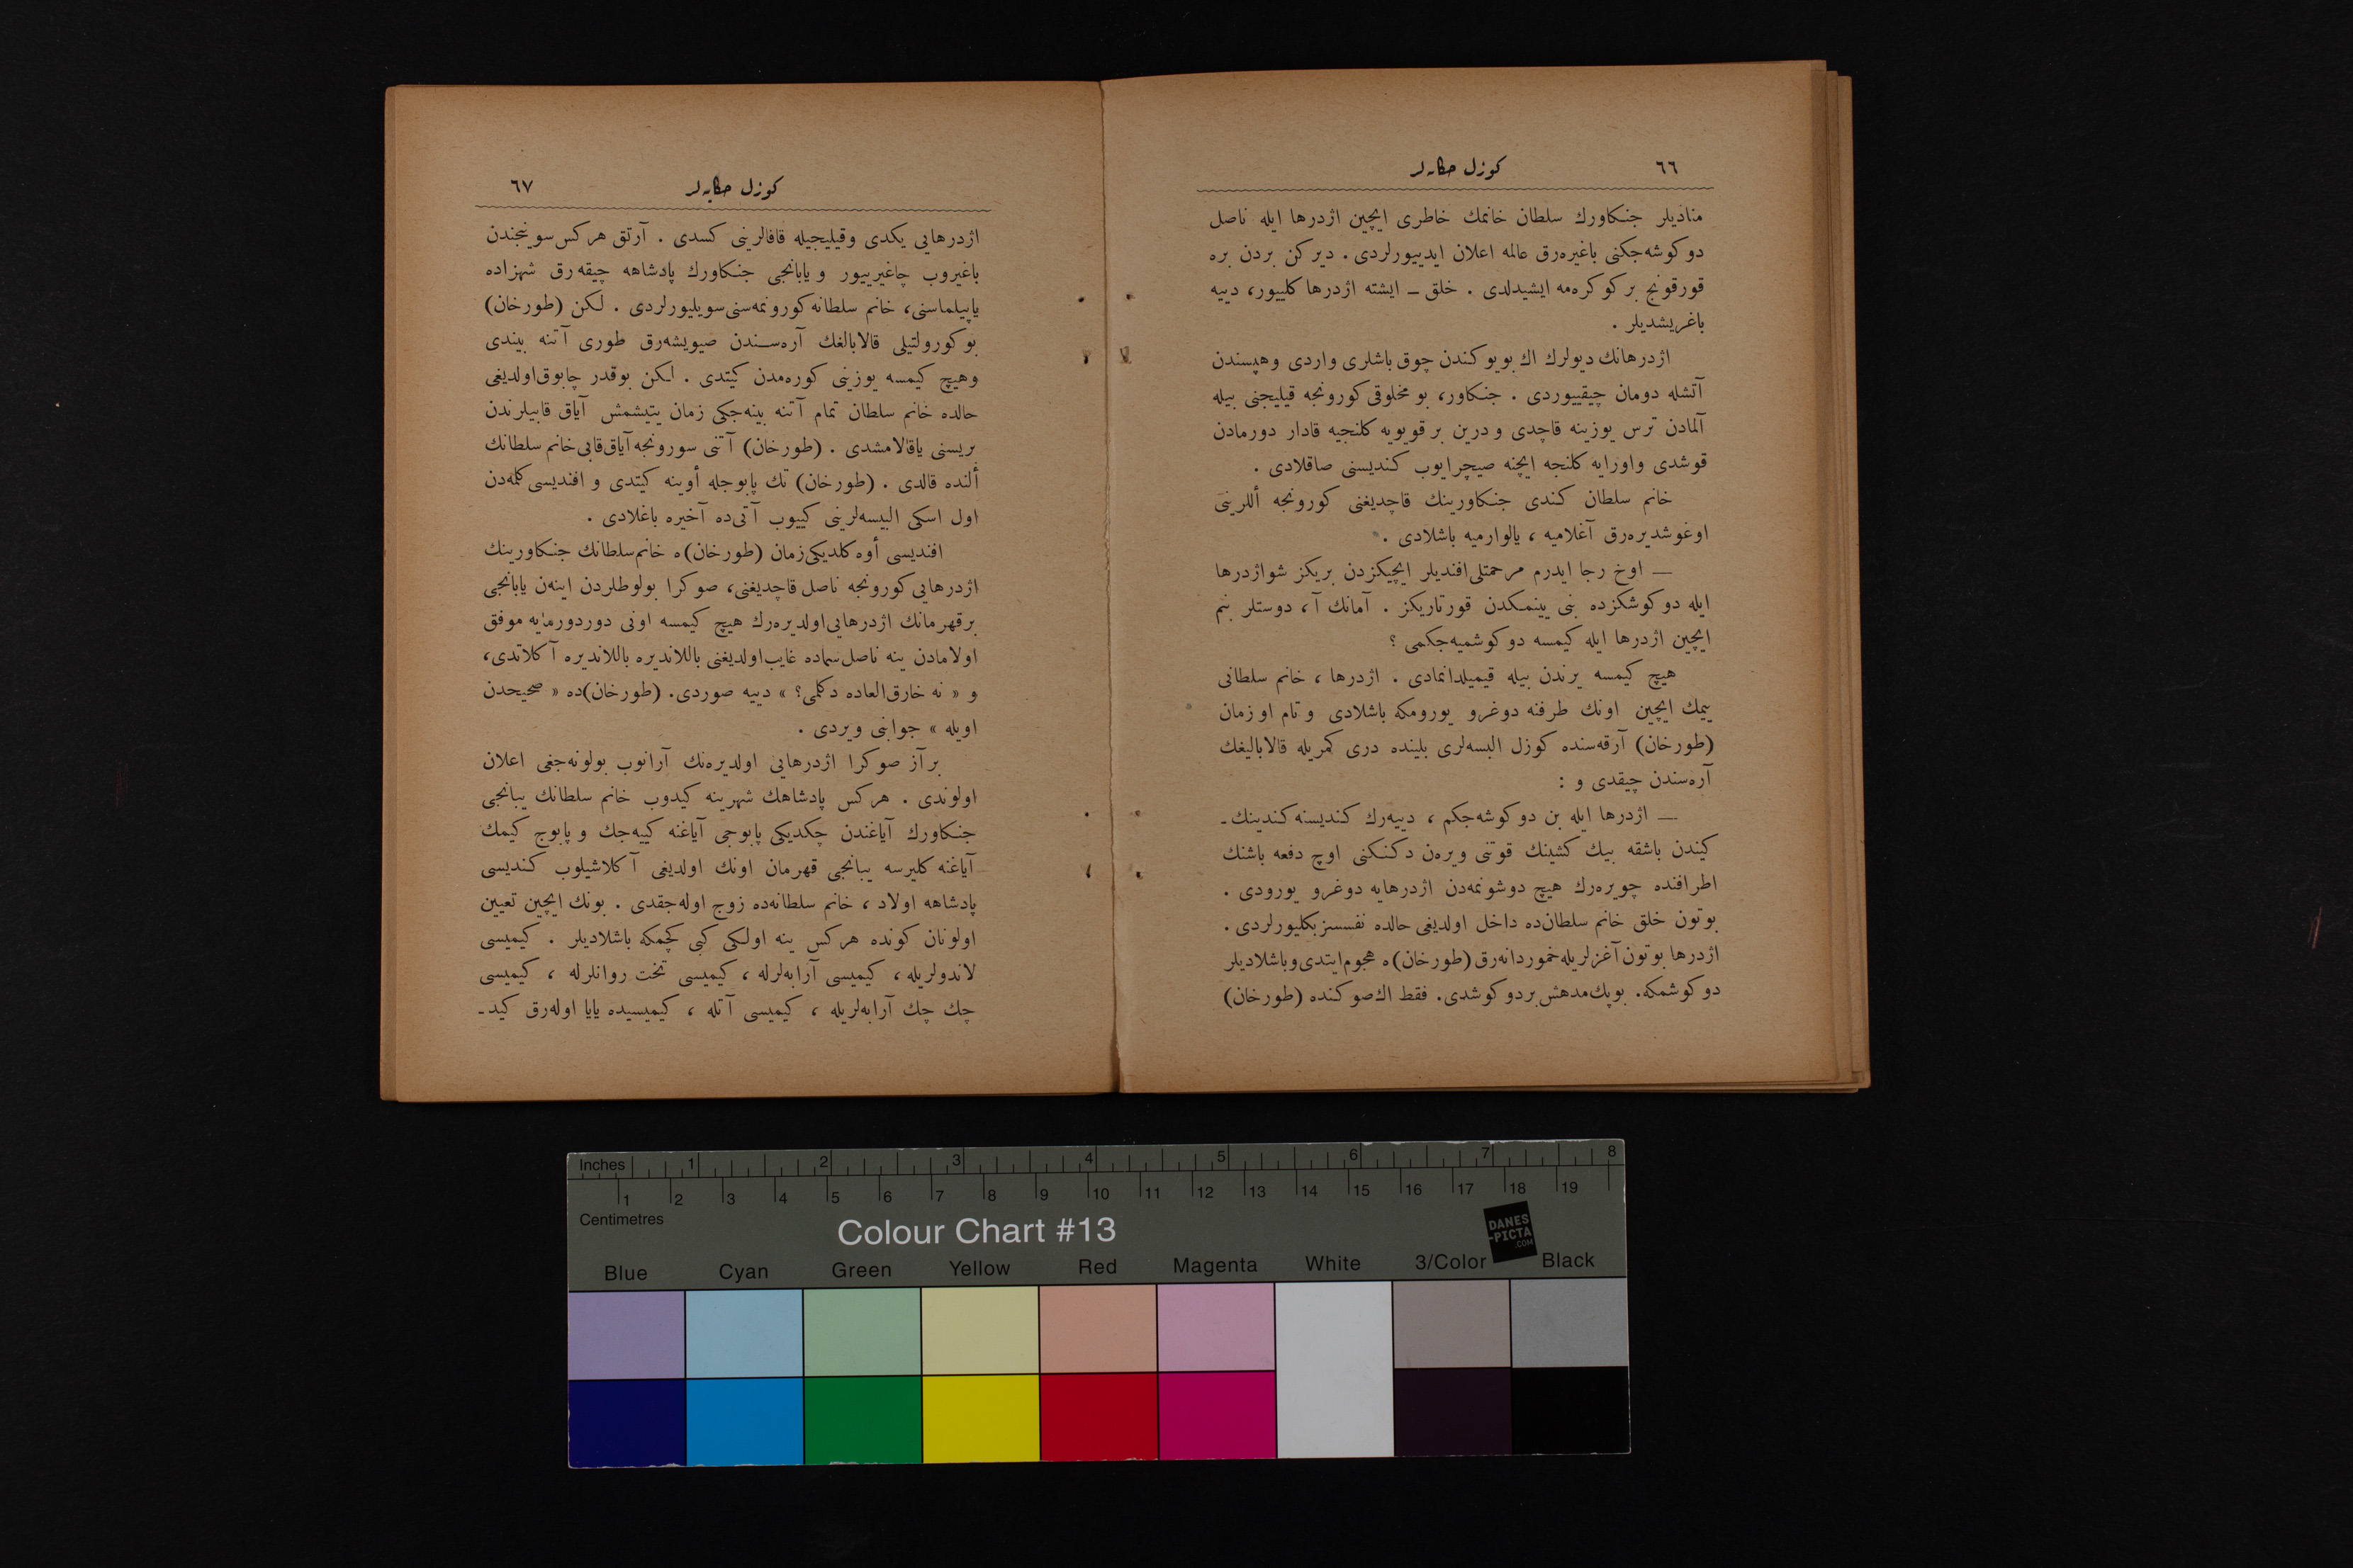 ٦٦
كوزل حكايه‌لر
مناديلر جنكاورك سلطان خانمك خاطرى ايچين اژدرها ايله ناصل
دوكوشه‌جكنى باغيره‌رق عالمه اعلان ايدييورلردى . ديركن بردن بره
قورقونج بر كوكره‌مه ايشيدلدى . خلق ــ ايشته اژدرها كلييور، دييه
باغريشديلر .
اژدرهانك ديولرك اك بويوكندن چوق باشلرى واردى وهپسندن
آتشله دومان چيقييوردى . جنكاور، بو مخلوقى كورونجه قيليجنى بيله
آلمادن ترس يوزينه قاچدى و درين بر قويويه كلنجيه قادار دورمادن
قوشدى واورايه كلنجه ايچنه صيچرايوب كنديسنى صاقلادى .
خانم سلطان كندى جنكاورينك قاچديغنى كورونجه أللرينى
اوغوشديره‌رق آغلاميه ، يالوارميه باشلادى .
ــ اوخ رجا ايدرم مرحمتلى افنديلر ايچيكزدن بريكز شواژدرها
ايله دوكوشكزده بنى يينمكدن قورتاريكز . آمانك آ، دوستلر بنم
ايچين اژدرها ايله كيمسه دوكوشميه‌جكمى ؟
هيچ كيمسه يرندن بيله قيميلدانمادى . اژدرها ، خانم سلطانى
ييمك ايچين اونك طرفنه دوغرو يورومكه باشلادى و تام او زمان
(طورخان) آرقه‌سنده كوزل البسه‌لرى بلينده درى كمريله قالاباليغك
آره‌سندن چيقدى و :
ــ اژدرها ايله بن دوكوشه‌جكم ، دييه‌رك كنديسنه كندينك ـ
كيندن باشقه بيك كشينك قوتنى ويره‌ن دكنكنى اوچ دفعه باشنك
اطرافنده چويره‌رك هيچ دوشونمه‌دن اژدرهايه دوغرو يورودى .
بوتون خلق خانم سلطان‌ده داخل اولديغى حالده نفسسز بكليورلردى .
اژدرها بوتون آغزلريله خموردانه‌رق (طورخان)ه هجوم ايتدى و باشلاديلر
دوكوشمكه. بو پك مدهش بر دوكوشدى. فقط اك صوكنده (طورخان)
كوزل حكايه‌لر
٦٧
اژدرهايى يكدى وقيليجيله قافالرينى كسدى . آرتق هركس سوينجندن
باغيروب چاغيرييور و يابانجى جنكاورك پادشاهه چيقه‌رق شهزاده
ياپيلماسنى، خانم سلطانه كورونمه‌سنى سويليورلردى . لكن (طورخان)
بو كورولتيلى قالابالغك آره‌سندن صيويشه‌رق طورى آتنه بيندى
وهيچ كيمسه يوزينى كوره‌مدن كيتدى . لكن بوقدر چابوق اولديغى
حالده خانم سلطان تمام آتنه بينه‌جكى زمان يتيشمش آياق قابيلرندن
بريسنى ياقالامشدى . (طورخان) آتنى سورونجه آياق‌قابى خانم سلطانك
ألنده قالدى . (طورخان) تك پابوجله أوينه كيتدى و افنديسى كلمه‌دن
اول اسكى البيسه‌لرينى كييوب آتى‌ده آخيره باغلادى .
افنديسى أوه كلديكى زمان (طورخان)ه خانم سلطانك جنكاورينك
اژدرهايى كورونجه ناصل قاچديغنى، صوكرا بولوطلردن اينه‌ن يابانجى
برقهرمانك اژدرهايى اولديره‌رك هيچ كيمسه اونى دوردورمايه موفق
اولامادن ينه ناصل سماده غايب اولديغنى باللانديره باللانديره آكلاتدى،
و « نه خارق‌العاده دكلمى؟ » دييه صوردى. (طورخان)ده « صحيحدن
اويله » جوابنى ويردى .
بر آز صوكرا اژدرهايى اولديره‌نك آرانوب بولونه‌جغى اعلان
اولوندى . هركس پادشاهك شهرينه كيدوب خانم سلطانك يبانجى
جنكاورك آياغندن چكديكى پابوجى آياغنه كييه‌جك و پابوج كيمك
آياغنه كليرسه يبانجى قهرمان اونك اولديغى آكلاشيلوب كنديسى
پادشاهه اولاد ، خانم سلطانه‌ده زوج اوله‌جقدى . بونك ايچين تعيين
اولونان كونده هركس ينه اولكى كبى كچمكه باشلاديلر . كيميسى
لاندولريله ، كيميسى آرابه‌لرله ، كيميسى تخت روانلرله ، كيميسى
چك چك آرابه‌لريله ، كيميسى آتله ، كيميسيده يايا اوله‌رق كيد ـ
Inches 1 2 3 4 5 6 7 8
1 2 3 4 5 6 7 8 9 10 11 12 13 14 15 16 17 18 19
Centimetres
Colour Chart #13
DANES
-PICTA
.COM
Blue Cyan Green Yellow Red Magenta White 3/Color Black